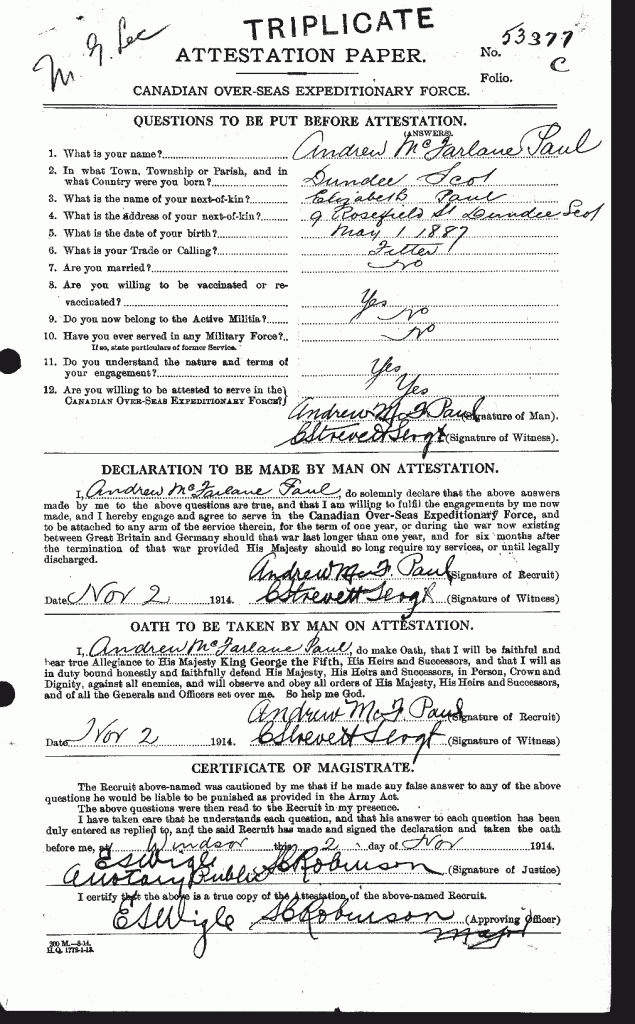 TRIPLICATE
M. G. Lee
ATTESTATION PAPER.
No. 53377
Folio. C
CANADIAN OVER-SEAS EXPEDITIONARY FORCE.
QUESTIONS TO BE PUT BEFORE ATTESTATION.
(ANSWERS).
1. What is your name? Andrew McFarlane Paul
2. In what Town, Township or Parish, and in
what Country were you born? Dundee Scot
3. What is the name of your next-of-kin? Elizabeth Paul
4. What is the address of your next-of-kin? 9 Rosefield St Dundee Scot
5. What is the date of your birth? May 1 1887
6. What is your Trade or Calling? Fitter
7. Are you married? No
8. Are you willing to be vaccinated or re-
vaccinated? Yes
9. Do you now belong to the Active Militia? No
10. Have you ever served in any Military Force?.. No
If so, state particulars of former Service.
11. Do you understand the nature and terms of
your engagement? Yes
12. Are you willing to be attested to serve in the
CANADIAN OVER-SEAS EXPEDITIONARY FORCE? Yes
Andrew McF. Paul (Signature of Man).
C Strevett Sergt (Signature of Witness).
DECLARATION TO BE MADE BY MAN ON ATTESTATION.
I, Andrew McFarlane Paul, do solemnly declare that the above answers
made by me to the above questions are true, and that I am willing to fulfil the engagements by me now
made, and I hereby engage and agree to serve in the Canadian Over-Seas Expeditionary Force, and
to be attached to any arm of the service therein, for the term of one year, or during the war now existing
between Great Britain and Germany should that war last longer than one year, and for six months after
the termination of that war provided His Majesty should so long require my services, or until legally
discharged.
Andrew McF. Paul (Signature of Recruit)
Date Nov 2 1914. C Strevett Sergt (Signature of Witness)
OATH TO BE TAKEN BY MAN ON ATTESTATION.
I, Andrew McFarlane Paul, do make Oath, that I will be faithful and
bear true Allegiance to His Majesty King George the Fifth, His Heirs and Successors, and that I will as
in duty bound honestly and faithfully defend His Majesty, His Heirs and Successors, in Person, Crown and
Dignity, against all enemies, and will observe and obey all orders of His Majesty, His Heirs and Successors,
and of all the Generals and Officers set over me. So help me God.
Andrew McF Paul (Signature of Recruit)
Date Nov 2 1914. C Strevett Sergt (Signature of Witness)
CERTIFICATE OF MAGISTRATE.
The Recruit above-named was cautioned by me that if he made any false answer to any of the above
questions he would be liable to be punished as provided in the Army Act.
The above questions were then read to the Recruit in my presence.
I have taken care that he understands each question, and that his answer to each question has been
duly entered as replied to, and the said Recruit has made and signed the declaration and taken the oath
before me, at Windsor this 2 day of Nov 1914.
E S Wigle
A Notary Public S C Robinson (Signature of Justice)
I certify that the above is a true copy of the Attestation of the above-named Recruit.
E S Wigle S C Robinson (Approving Officer)
Major
200 M.—8-14.
H. Q. 1772-1-13.